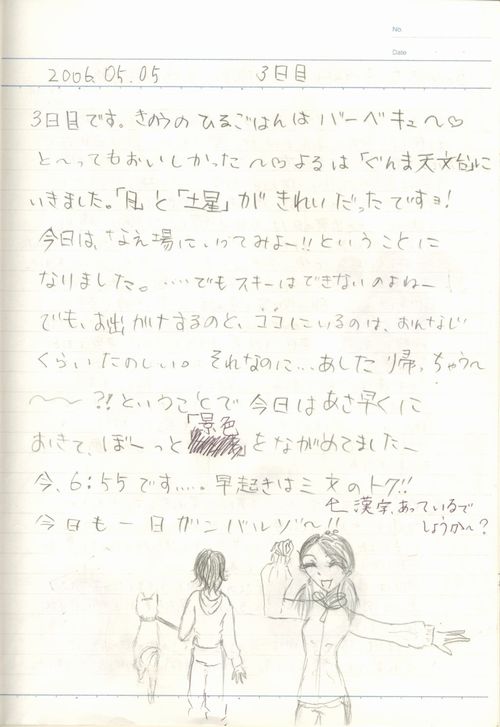 No.
Date
2006.05.05 3日目
3日目です。きのうのひるごはんはバーベキュ〜♡
と〜ってもおいしかった〜♡よるは「ぐんま天文台」に
いきました。「月」と「土星」がきれいだったですョ!
今日は、「なえ場にいってみよー!!ということに
なりました。……でもスキーはできないのよねー
でも、お出かけするのと、ココにいるのは、おんなじ
くらいたのしい。それなのに…あした帰っちゃう〜
〜〜?!ということで今日はあさ早くに
おきて、ぼーっと「景色」をながめてましたー
今、6:55です……。早起きは三文のトク!!
漢字、あっているで
しょうか〜?
今日も一日ガンバルゾ〜!!